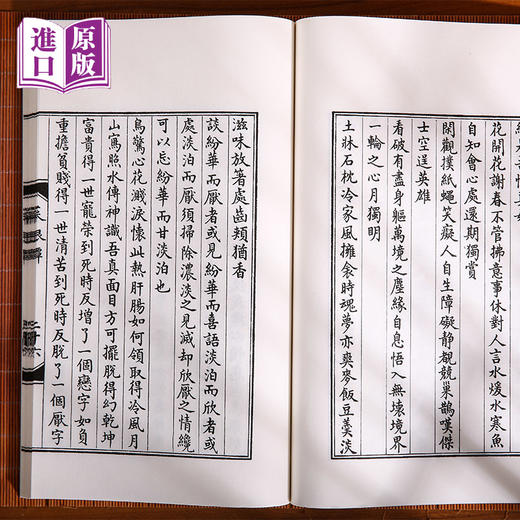 進口
原版
花開花謝春不管拂意事休對人言水煖水寒魚
自知會心處還期獨賞
閒觀撲紙蠅笑癡人自生障礙靜覩競巢鵲嘆傑
士空逞英雄
看破有盡身軀萬境之塵緣自息悟入無壞境界
一輪之心月獨明
土牀石枕冷家風擁衾時魂夢亦爽麥飯豆羹淡
滋味放箸處齒頰猶香
談紛華而厭者或見紛華而喜語淡泊而欣者或
處淡泊而厭須掃除濃淡之見滅却欣厭之情纔
可以忘紛華而甘淡泊也
鳥驚心花濺淚懷此熱肝腸如何領取得冷風月
山寫照水傳神識吾真面目方可擺脫得幻乾坤
富貴得一世寵榮到死時反增了一個戀字如負
重擔貧賤得一世清苦到死時反脫了一個厭字
菜根譚